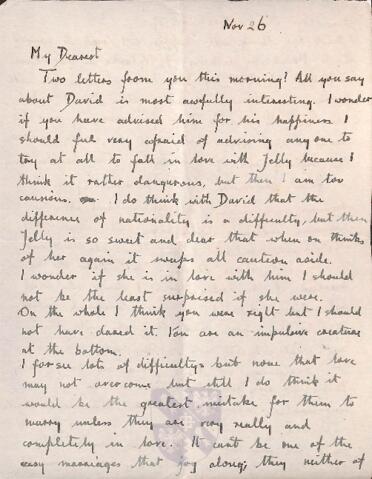 Nov 26
My Dearest
Two letters from you this morning? All you say
about David is most awfully interesting. I wonder
if you have advised him for his happiness I
should feel very afraid of advising any one to
try at all to fall in love with Jelly because I
think it rather dangerous, but then I am too
causious. I do think with David that the
difference of nationality is a difficulty, but then
Jelly is so sweet and dear that when on thinks
of her again it sweeps all caution aside.
I wonder if she is in love with him I should
not be the least surprised if she were.
On the whole I think you were right but I should
not have dared it. You are an impulsive creature
at the bottom.
I forsee lots of difficultys but none that love
may not overcome but still I do think it
would be the greatest mistake for them to
marry unless they are very really and
completely in love. It cant be one of the
easy marriages that jog along; they neither of